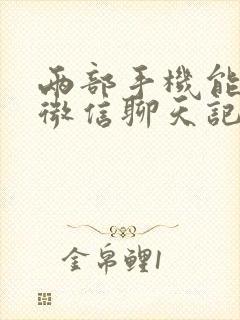 两部手機能
微信聊天記
金帛鲤1